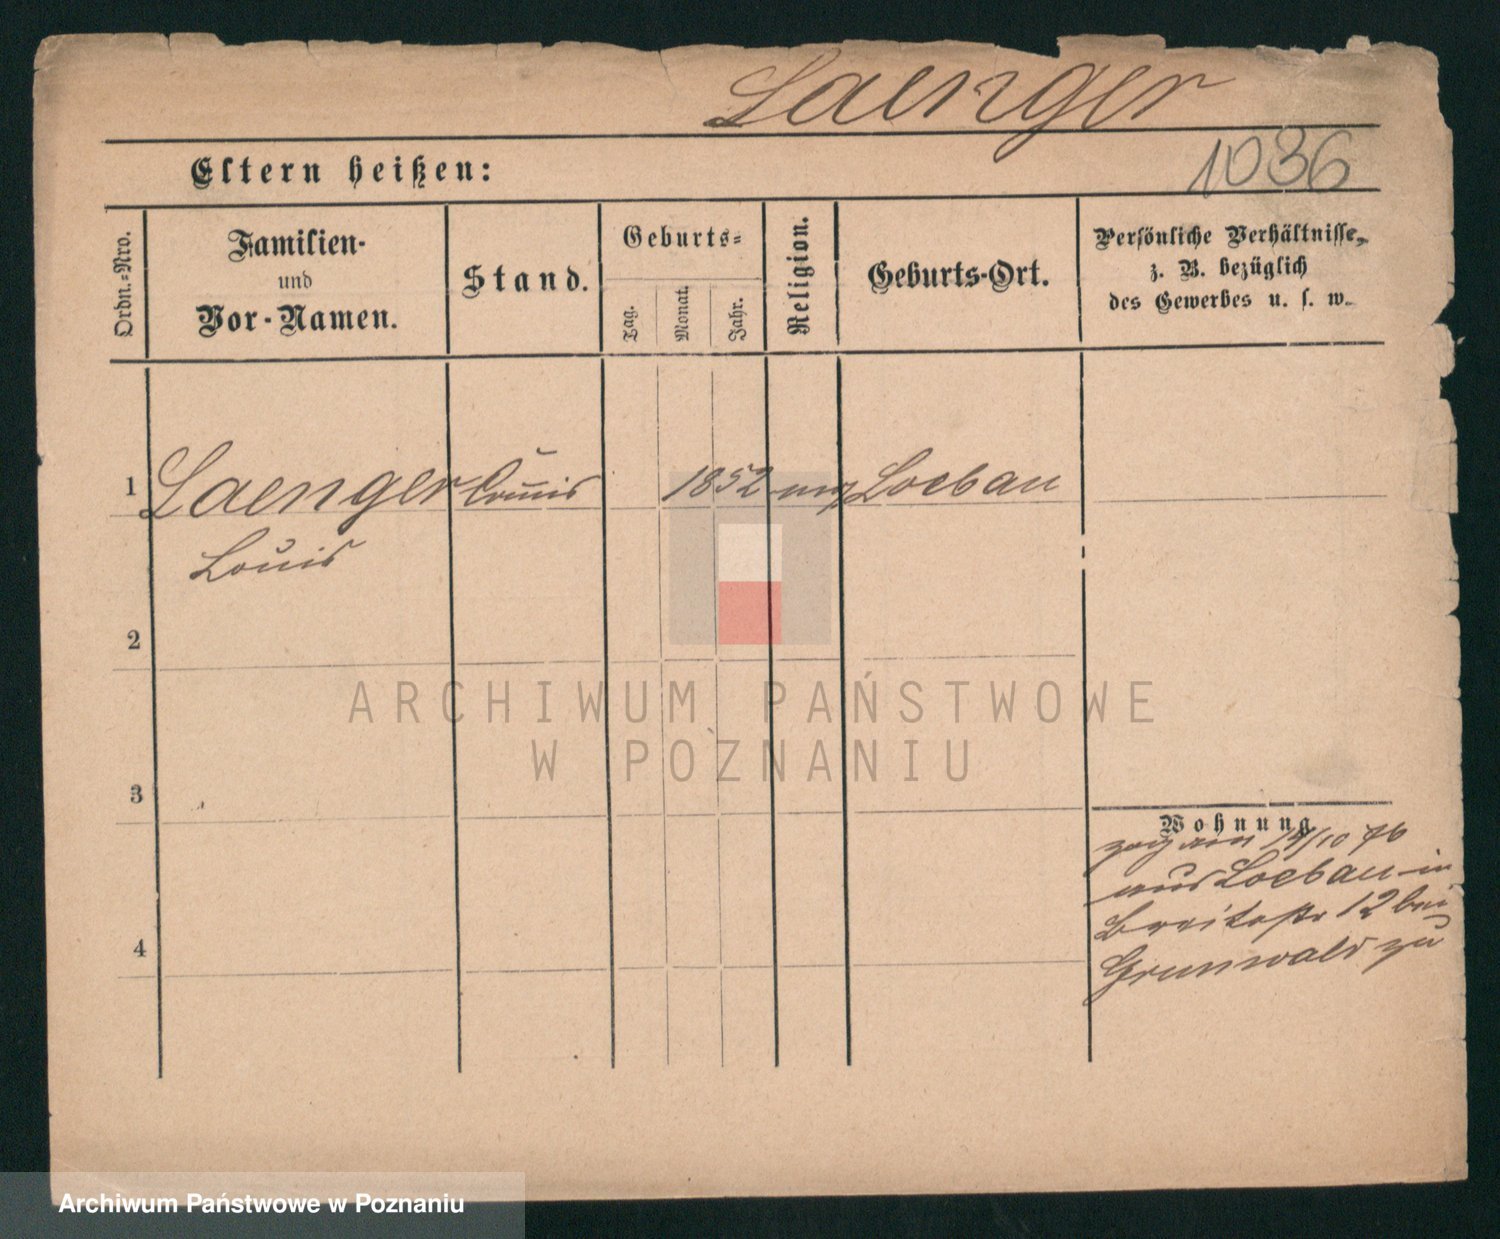 Laenger
Eltern heißen:
1036
Ordn.-Nro.
Familien-
und
Vor-Namen.
Stand.
Geburts-
Tag.
Monat.
Jahr.
Religion.
Geburts-Ort.
Persönliche Verhältnisse,
z. B. bezüglich
des Gewerbes u. s. w.
1 Laenger Comis 1852 Loebau
Louis
2
ARCHIWUM PAŃSTWOWE
W POZNANIU
3
Wohnung
zog am 14/10 76
aus Loebau in
Breitestr 12 bei
Grunwald zu
4
Archiwum Państwowe w Poznaniu